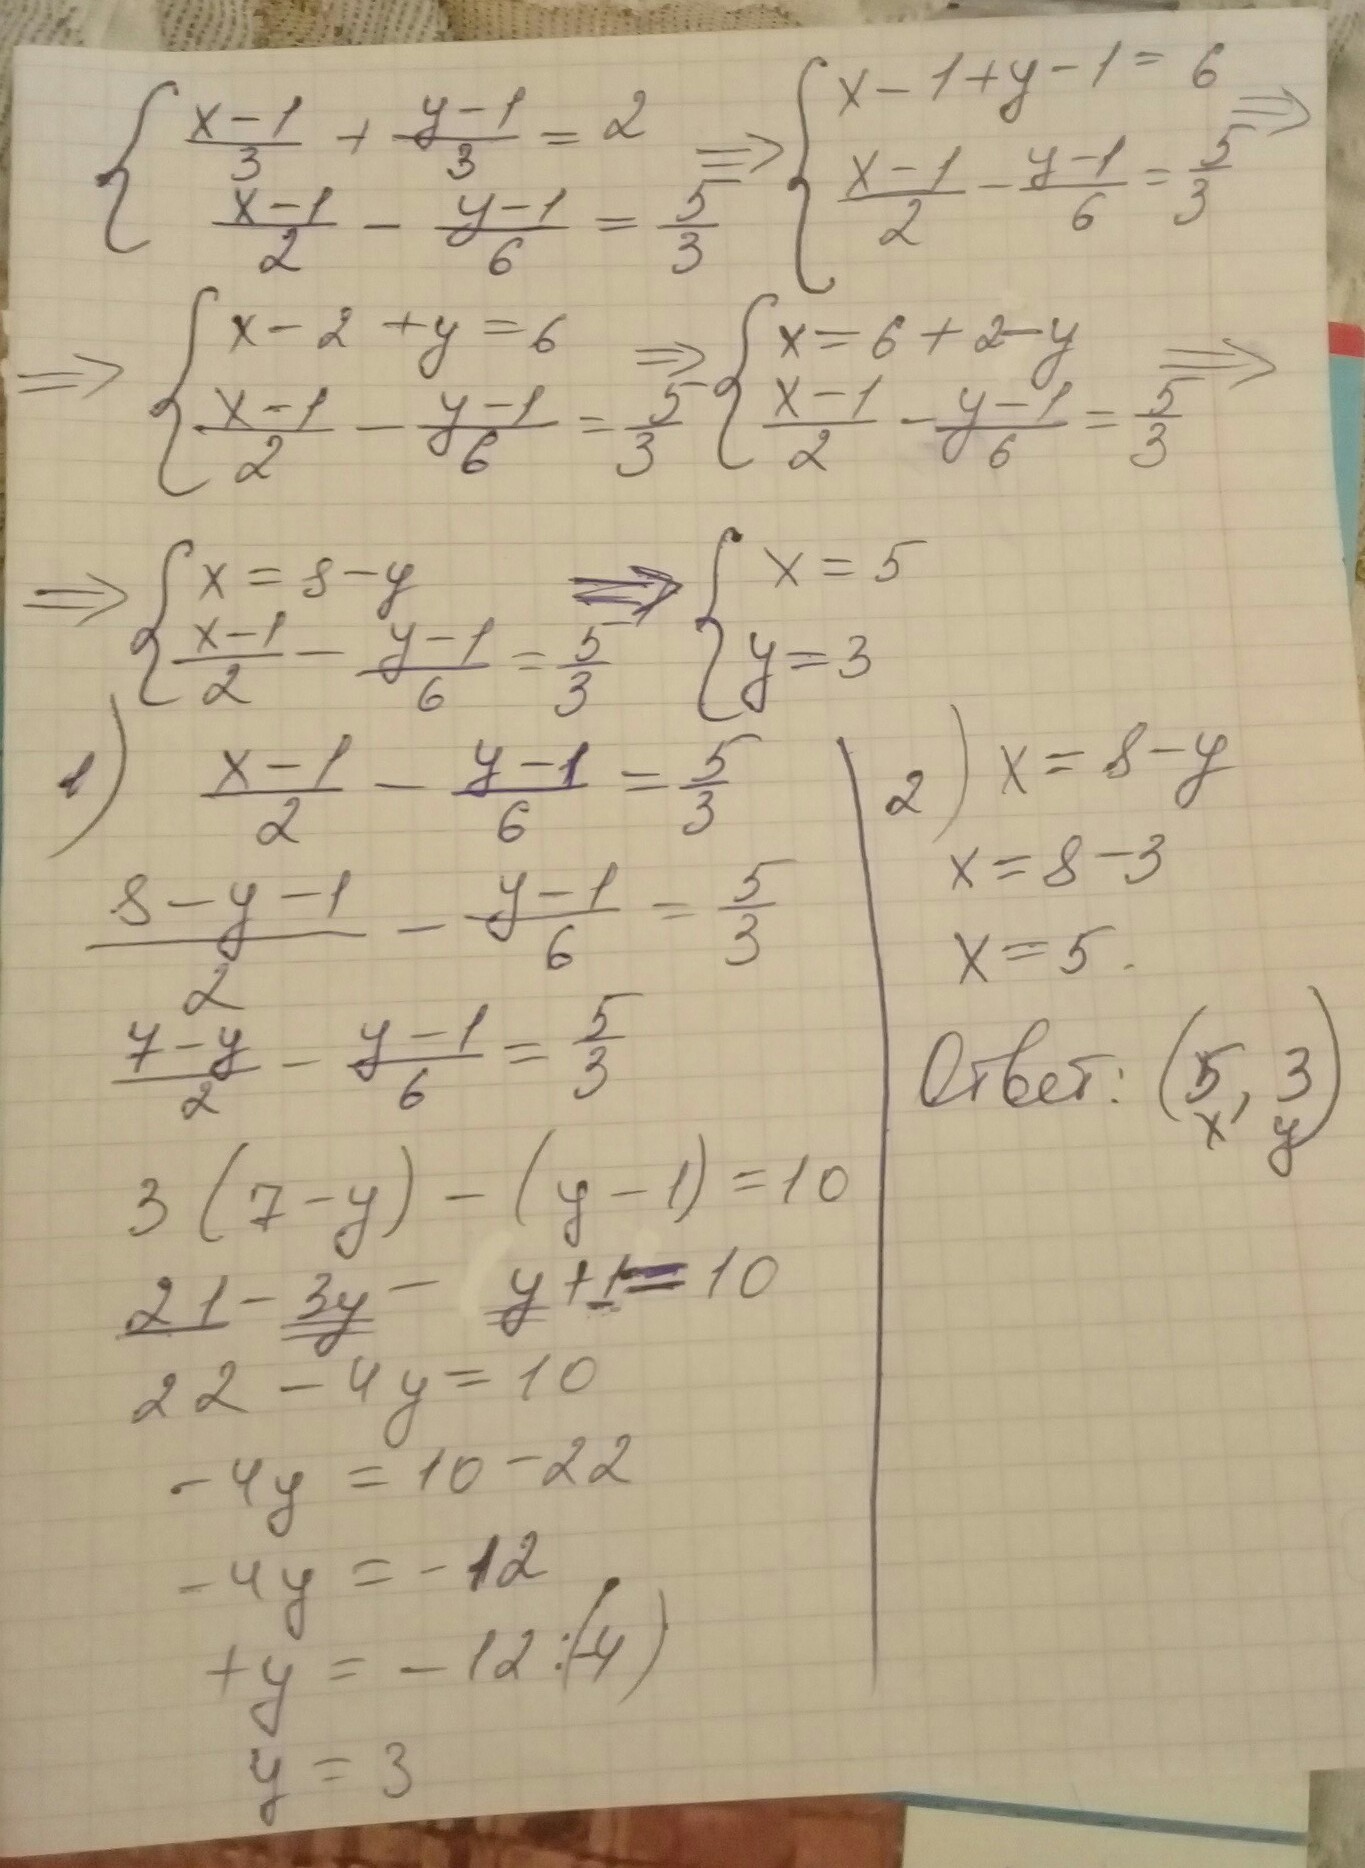 { (x-1)/3 + (y-1)/3 = 2 ⇒ { x-1+y-1 = 6 ⇒
(x-1)/2 - (y-1)/6 = 5/3 (x-1)/2 - (y-1)/6 = 5/3
⇒ { x-2+y=6 ⇒ { x=6+2-y ⇒
(x-1)/2 - (y-1)/6 = 5/3 (x-1)/2 - (y-1)/6 = 5/3
⇒ { x=8-y ⇒ { x=5
(x-1)/2 - (y-1)/6 = 5/3 y=3
1) (x-1)/2 - (y-1)/6 = 5/3
(8-y-1)/2 - (y-1)/6 = 5/3
(7-y)/2 - (y-1)/6 = 5/3
3(7-y)-(y-1)=10
21-3y-y+1=10
22-4y=10
-4y=10-22
-4y=-12
+y=-12:(-4)
y=3
2) x=8-y
x=8-3
x=5.
Ответ: (5, 3)
x y